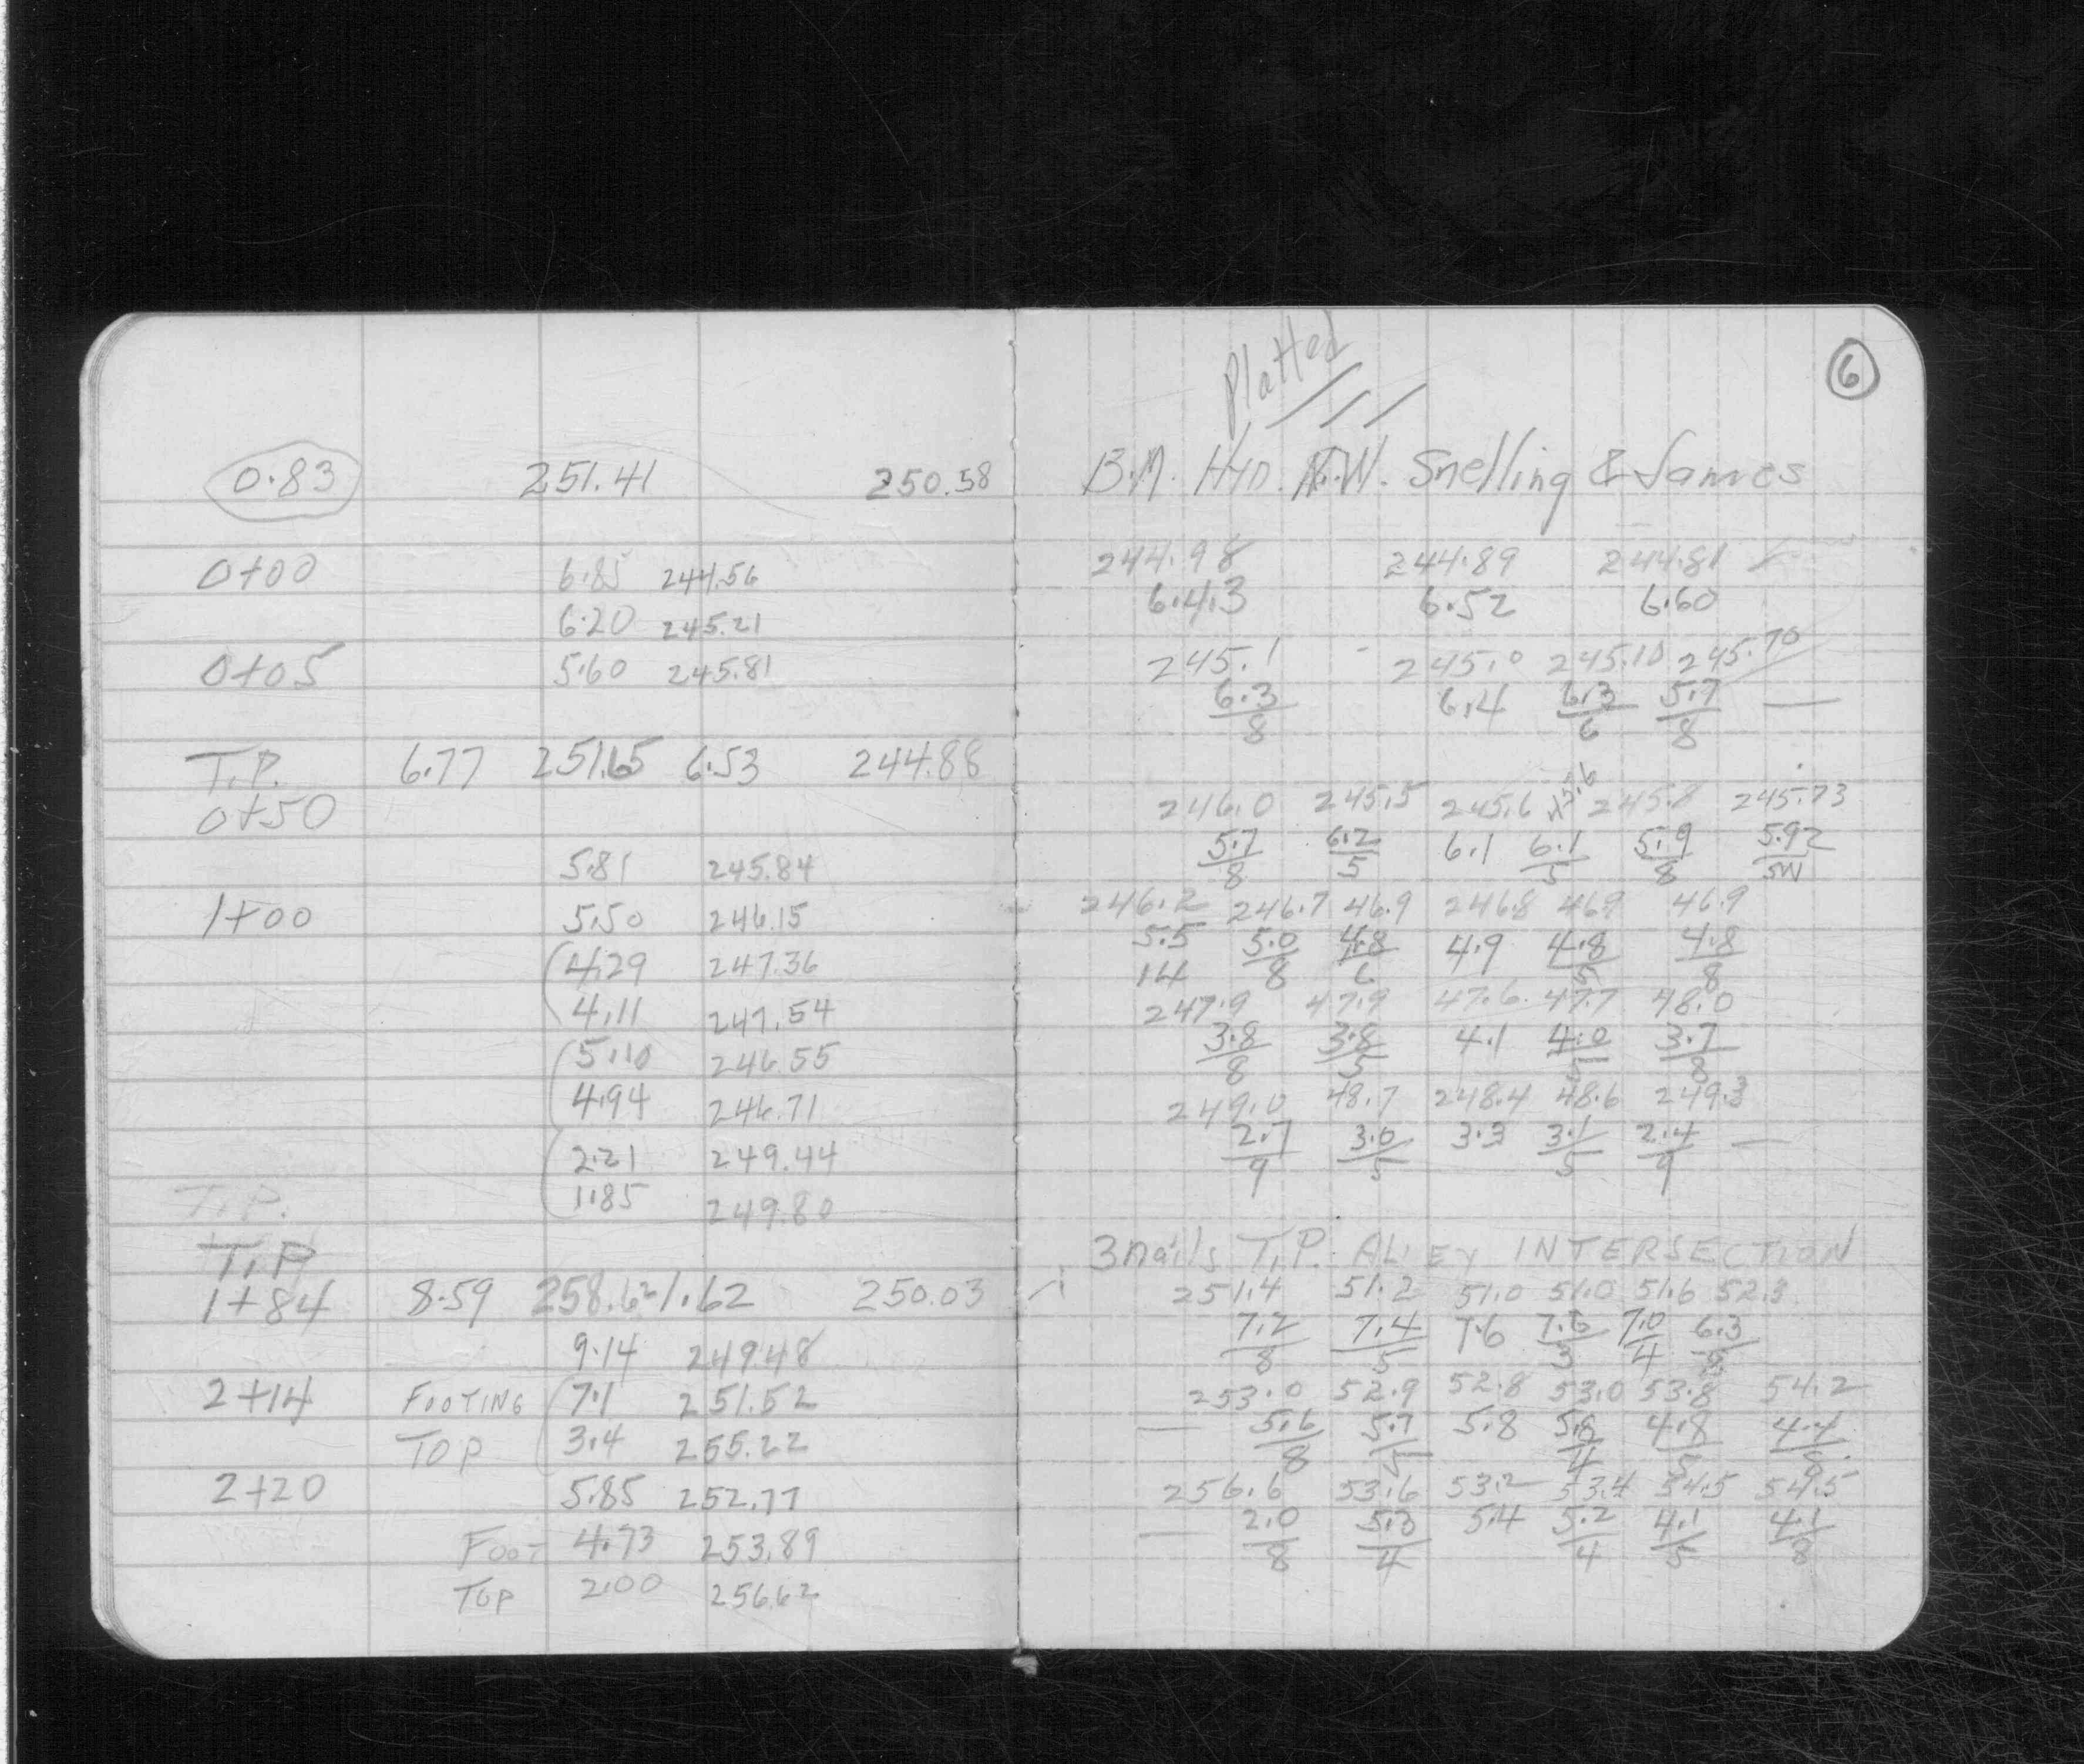 0.83 251.41 250.58
0+00 6.85 244.56
6.20 245.21
0+05 5.60 245.81
T.P. 6.77 251.65 6.53 244.88
0+50
5.81 245.84
1+00 5.50 246.15
4.29 247.36
4.11 247.54
5.10 246.55
4.94 246.71
2.21 249.44
1.85 249.80
T.P.
T.P
1+84 8.59 258.62 1.62 250.03
9.14 249.48
2+14 FOOTING 7.1 251.52
TOP 3.4 255.22
2+20 5.85 252.77
FOOT 4.73 253.89
TOP 2.00 256.62
6
Platted
B.M. HYD. N.W. Snelling & James
244.98 244.89 244.81
6.43 6.52 6.60
245.1 245.0 245.10 245.70
6.3 6.4 6.3 5.7
8 6 8
246.0 245.5 245.6 245.8 245.73
5.7 6.2 6.1 6.1 5.9 5.92
8 5 5 8 SW
246.2 246.7 46.9 246.8 46.9 46.9
5.5 5.0 4.8 4.9 4.8 4.8
14 8 6 5 8
247.9 47.9 47.6 47.7 48.0
3.8 3.8 4.1 4.0 3.7
8 5 5 8
249.0 48.7 248.4 48.6 249.3
2.7 3.0 3.3 3.1 2.4
9 5 5 9
3 nails T.P. ALLEY INTERSECTION
251.4 51.2 51.0 51.0 51.6 52.3
7.2 7.4 7.6 7.6 7.0 6.3
8 5 3 4 8
253.0 52.9 52.8 53.0 53.8 54.2
5.6 5.7 5.8 5.6 4.8 4.4
8 5 4 5 8
256.6 53.6 53.2 53.4 54.5 54.5
2.0 5.3 5.4 5.2 4.1 4.1
8 4 4 5 8